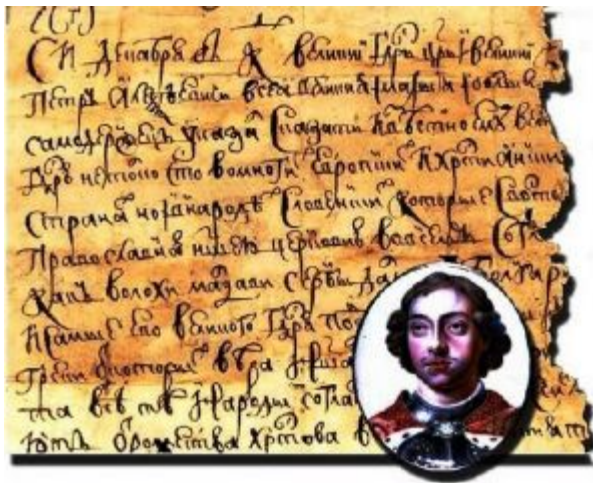 декабря въ К великиı Гдрь црь ı великиı
Петръ Алеѯѣевичь всеа великия ı малыя ı бѣлыя
самодержецъ указал сказати извѣстно ему вели
Гдрю не токмо что во многи европски христиански
страна но ı в народѣ словенски которые с восто
православною нашею церковию во всемъ согла
какъ волохи молдави сербы дал болгары
и самые его великого Гдря под
греки от которы вѣра наша
та всѣ тѣ народы согла
ютъ от рожества Хрстова в